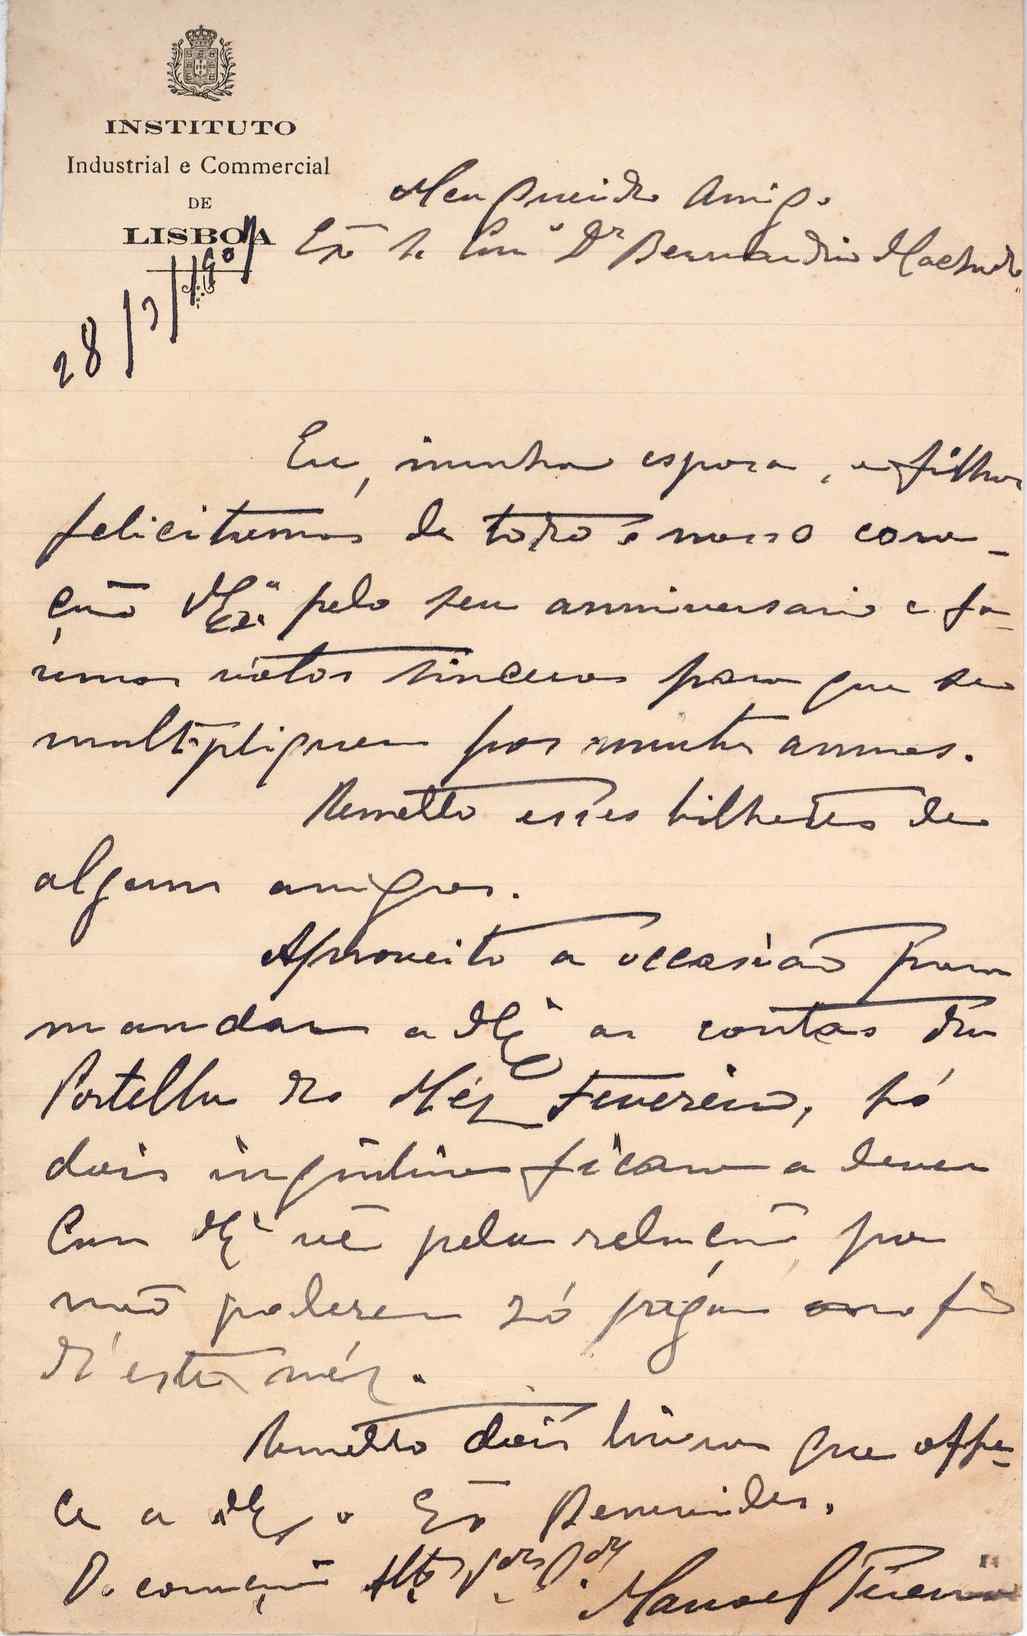 INSTITUTO
Industrial e Commercial
DE
LISBOA
28/3/1907
Meu querido Amigo
Exº Sr Consº Dr Bernardino Machado
Eu, minha esposa, e filhos
felicitamos de todo o nosso cora-
ção VExª pelo seu anniversario e fa-
zemos votos sinceros para que se
multipliquem por muitos annos.
Remetto esses bilhetes de
alguns amigos.
Aproveito a occasião para
mandar a VEª as contas da
Portella do Mêz Fevereiro, só
dois inquilinos ficaram a dever
Com VEª vê pela relação por
não poderem só pagam no fim
d'este mêz.
Remetto dois livros que offe-
ce a VEª o Exº Benevides.
De coração Attº
Manoel Pereira